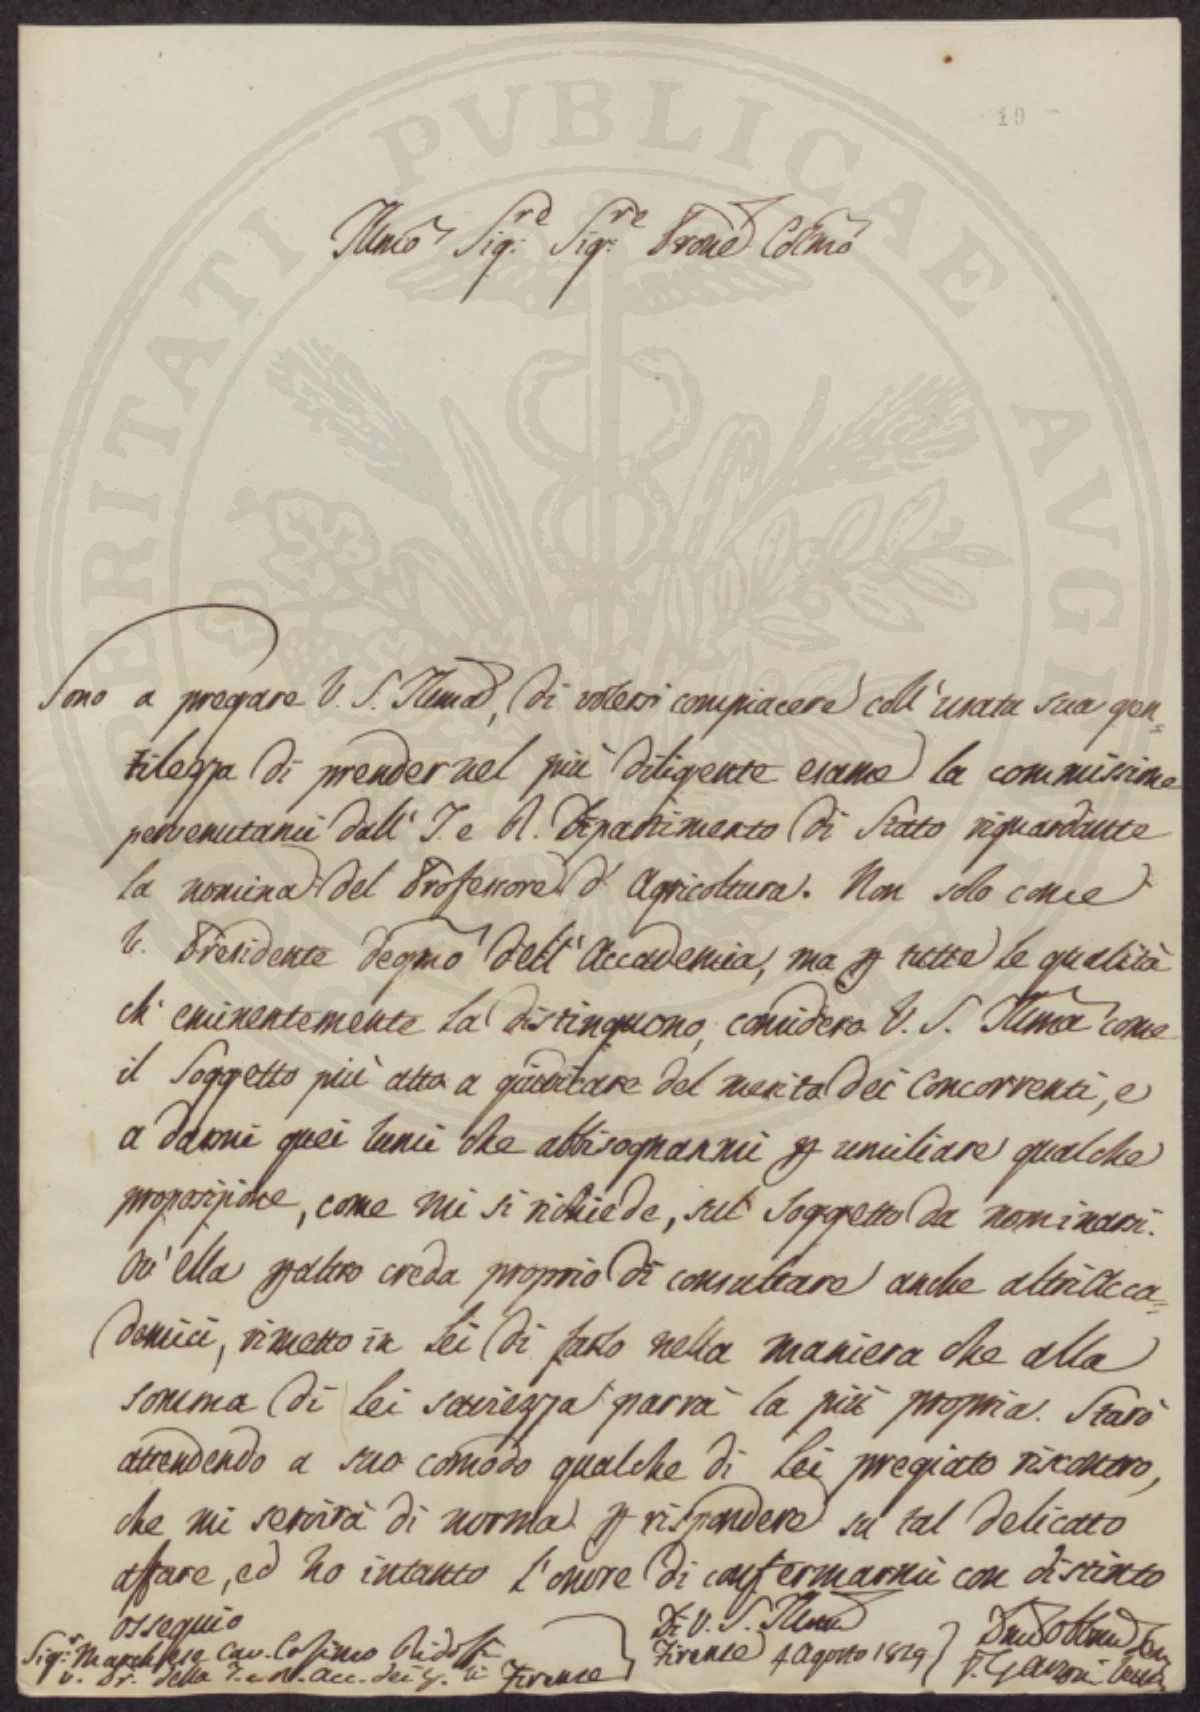 19
Illmo Sig.re Sig.re Prone Colmo
Sono a pregare V. S. Illma, di volersi compiacere coll' usata sua gen=
tilezza di prender nel più diligente esame la commissione
pervenutami dall' I. e R. Dipartimento di Stato riguardante
la nomina del Professore d' Agricoltura. Non solo come
V. Presidente degmo dell' Accademia, ma p tutte le qualità
ch' eminentemente La distinguono, considero V. S. Illma come
il Soggetto più atto a giudicare del merito dei Concorrenti, e
a darmi quei lumi che abbisognanmi p umiliare qualche
proposizione, come mi si richiede, sul Soggetto da nominarsi.
Ov' ella p altro creda proprio di consultare anche altri Acca=
demici, rimetto in Lei di farlo nella maniera che alla
somma di Lei saviezza parrà la più propria. Starò
attendendo a suo comodo qualche di Lei pregiato riscontro,
che mi servirà di norma p rispondere su tal delicato
affare, ed ho intanto l' onore di confermarmi con distinto
ossequio
Di V. S. Illma
Sig.r Marchese Cav. Cosimo Ridolfi
V. Pr. della I. e R. Acc. dei G. di Firenze
Firenze 4 Agosto 1829
P. Garzoni
PROSPERITATI PVBLICAE AVGENDAE